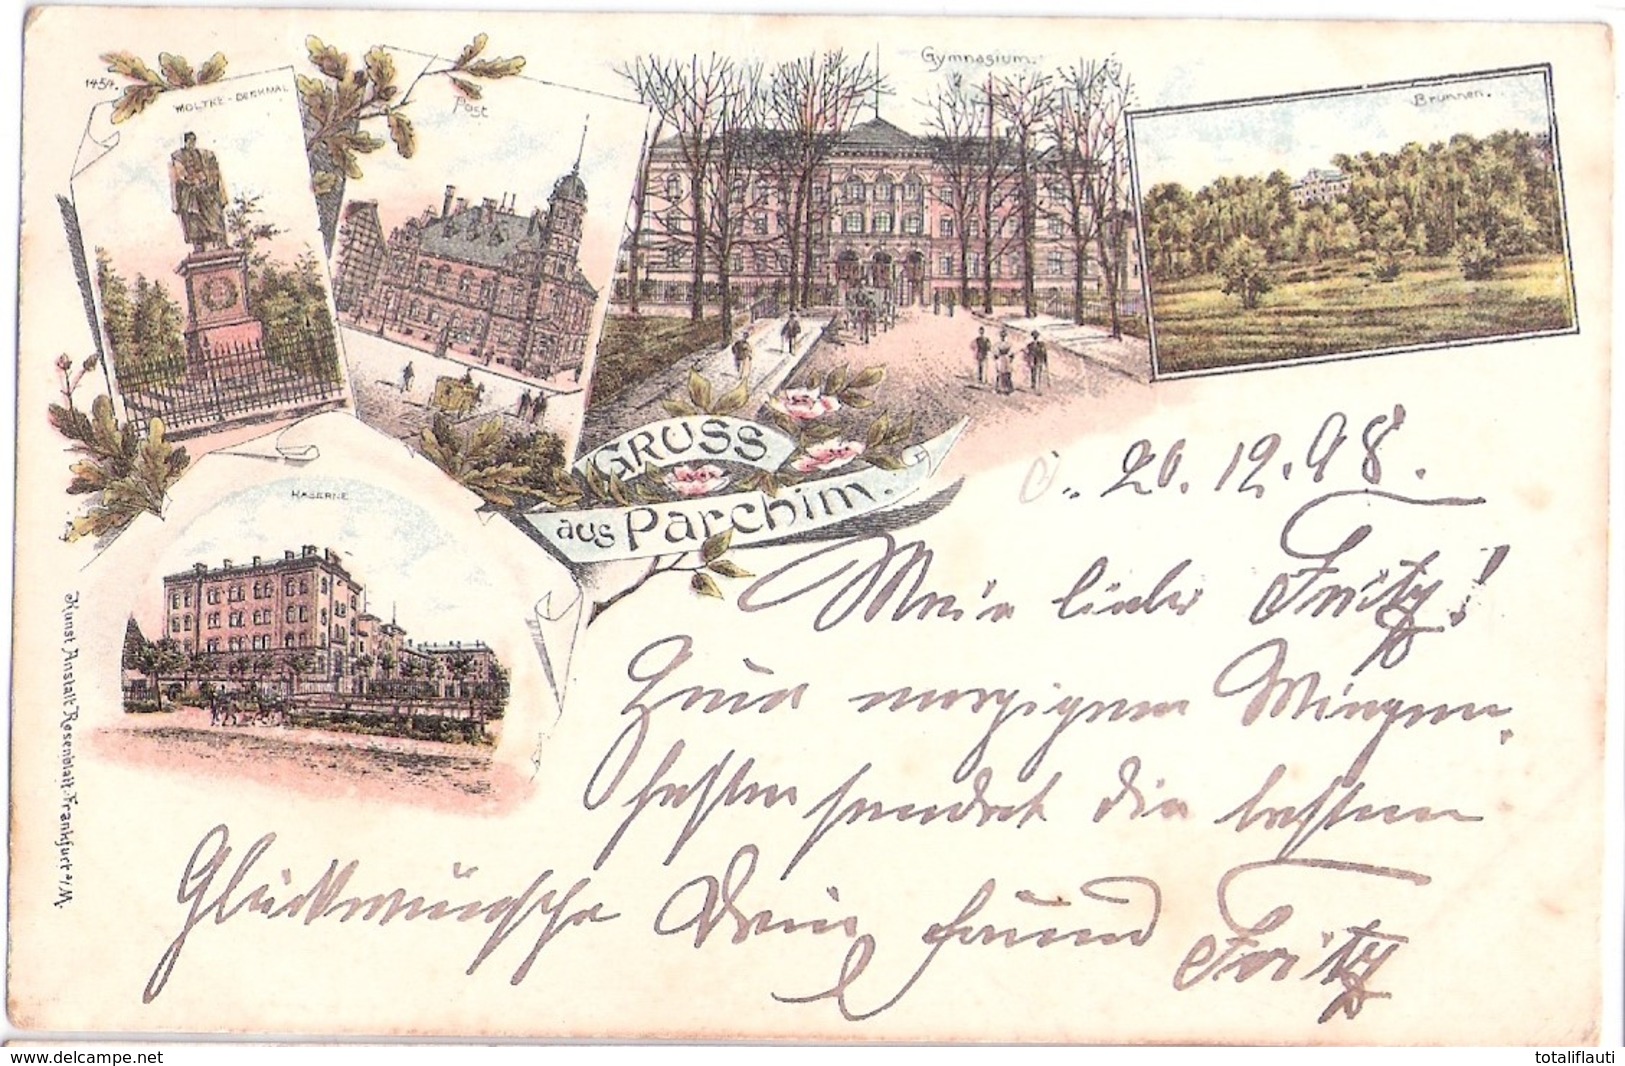 1454.
MOLTKE-DENKMAL
Post
Gymnasium.
Brunnen.
GRUSS
aus Parchim.
KASERNE
Kunst Anstalt Rosenblatt, Frankfurt a/M.
d. 20.12.98.
Mein lieber Fritz!
Zum morgigen Wiegen-
feste sendet die besten
Glückwünsche Dein Freund
Fritz
www.delcampe.net
totaliflauti